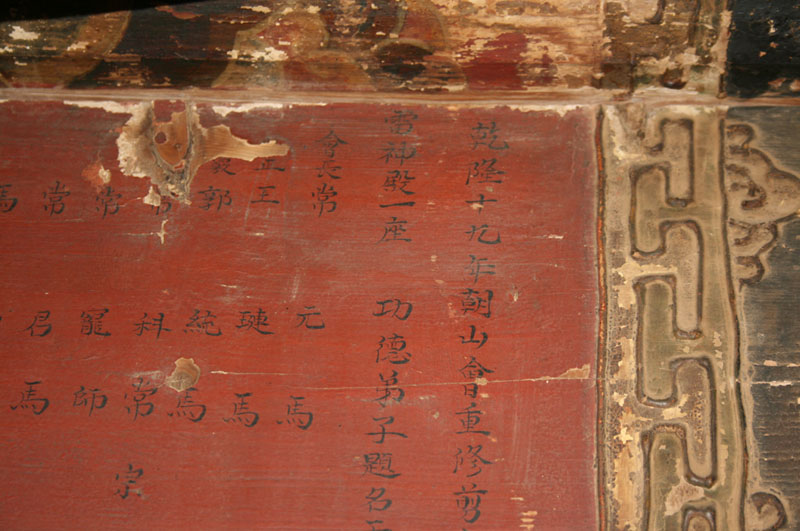 乾隆十九年朝山會重修剪
雷神殿一座 功德弟子題名
會長常 元 馬
正王 璉 馬
郭 統 馬
科 常 宗
常 師
常 君 馬
馬